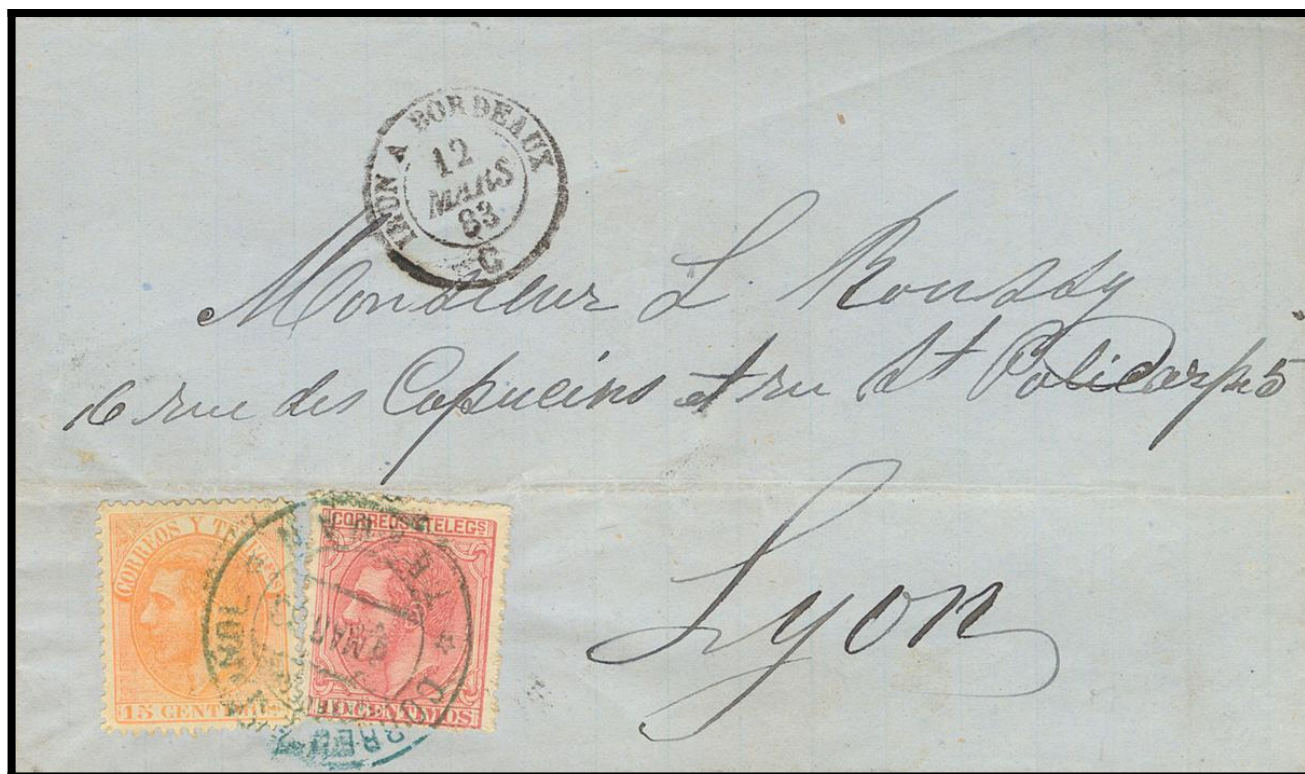 IRUN A BORDEAUX
12
MARS
83
Monsieur L. Roussy
6 rue des Capucins et rue St Policarpe 5
Lyon
CORREOS Y
15 CENT
CORREOS Y TELEGS
10 CENTIMOS
MAR